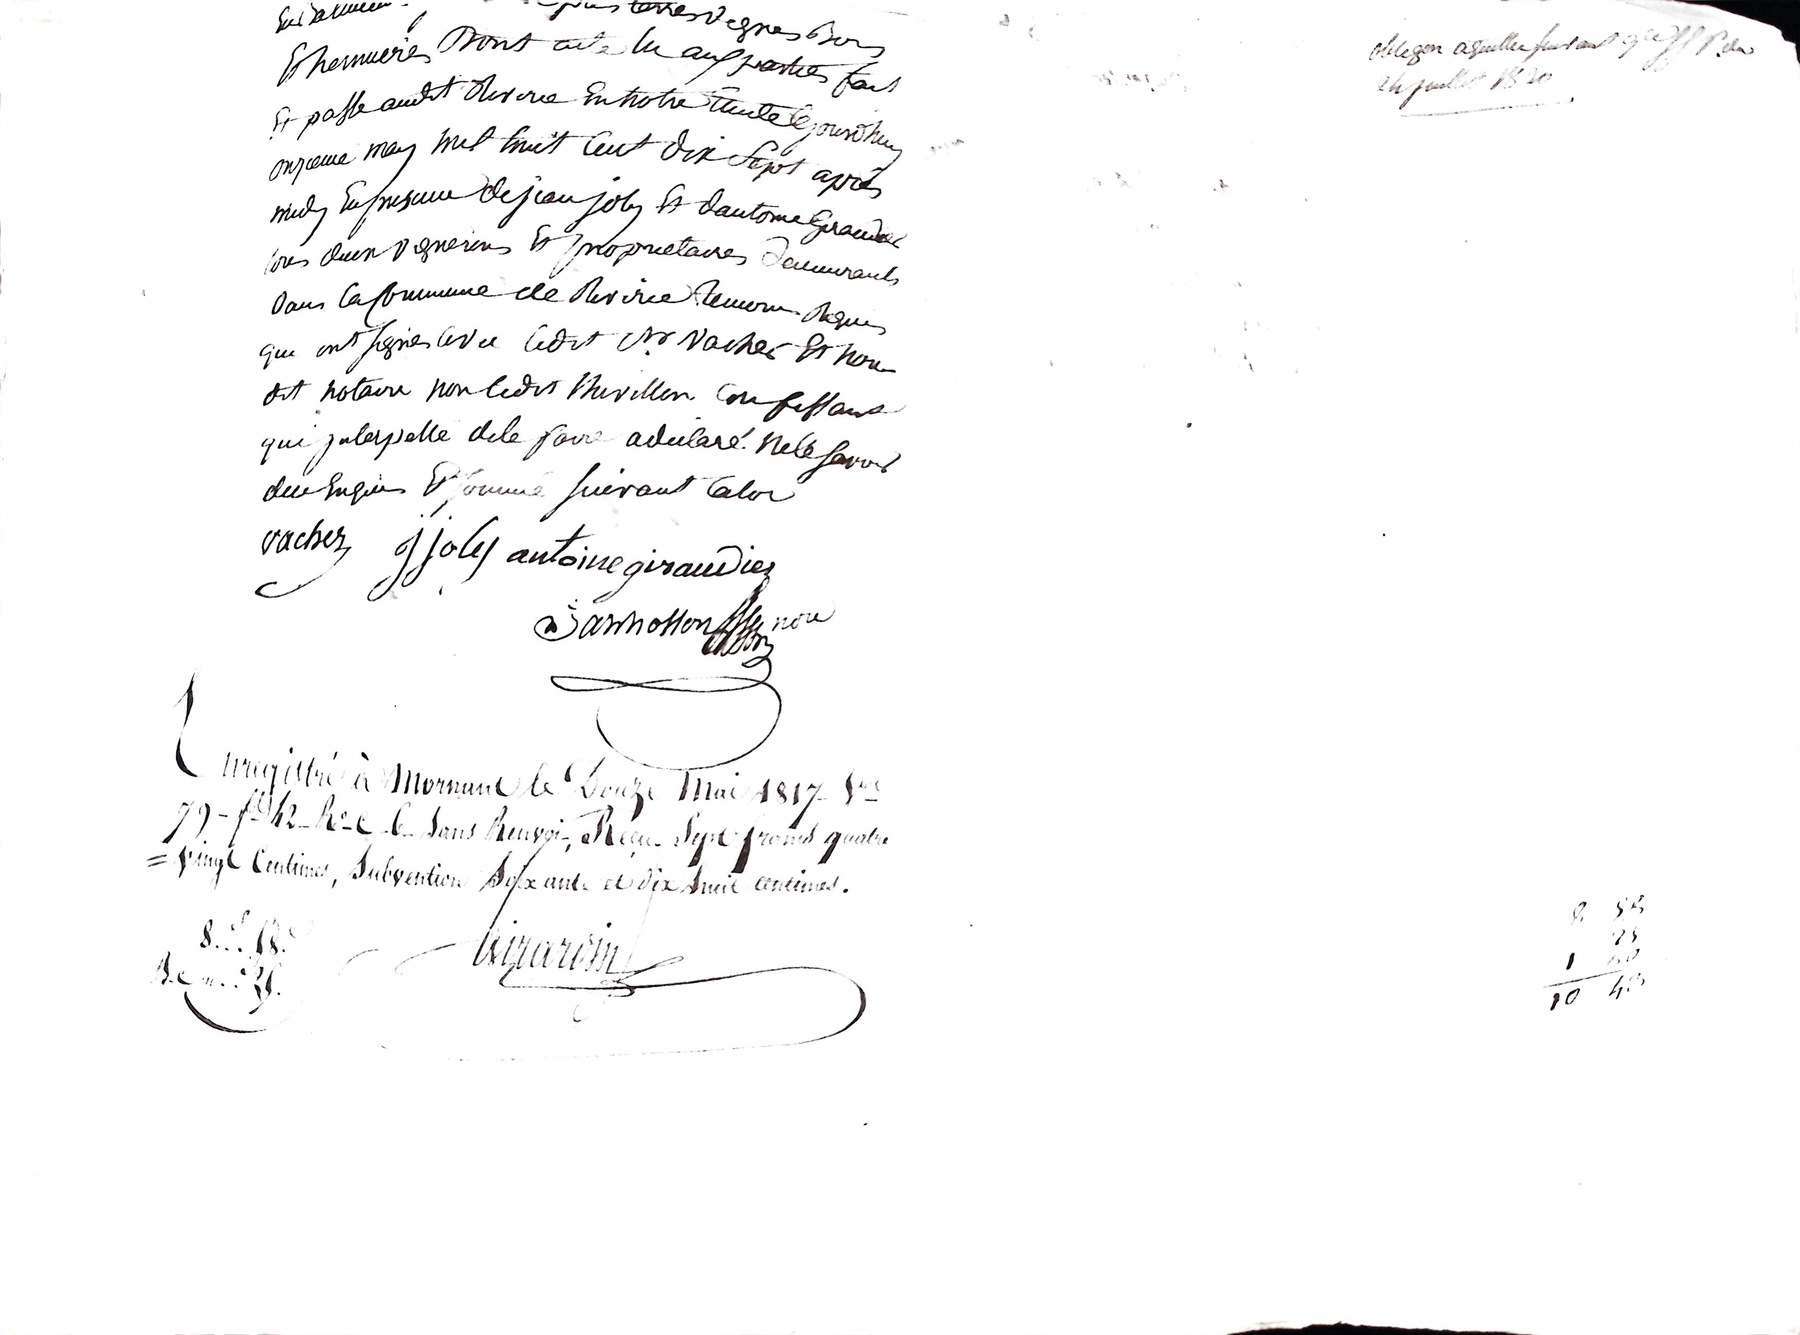 terres vignes Bois
Et hermieres Dont acte lu aux parties fait
Et passe audit Riverie En notre Etude Cejourdhuy
onzieme may mil huit Cent dix Sept apres
midy En presence de jean joly Et dantoine Giraudier
tous deux vignerons Et proprietaires demeurants
Dans la Commune de Riverie temoins Requis
que ont signes avec ledit Sr Vacher Et nous
dit notaire non ledit Thivillon Confessant
qui jnterpellé dele faire adeclaré nele savoir
dece Enquis Et sommé suivant laloi
vacher j joly antoine giraudier
nore
Enregistré à Mornant le Douze Mai 1817 Vol
79 - fo 42 Ro C. 6. Sans Renvoi, Reçu Sept francs quatre
= vingt Centimes, Subvention Soixante et dix huit centimes.
8. 58.
25.
Girardin
obligon aquittée suivant qce
24 juillet 1820
8 58
25
1 60
10 43